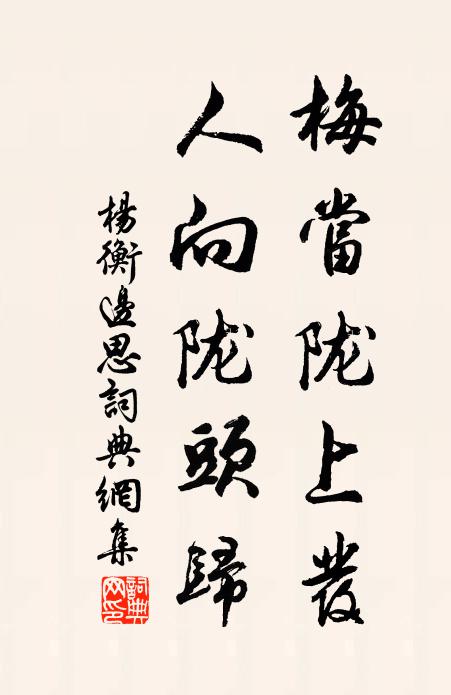 梅當陇上發
人向陇頭歸
楊衡邊思詞典網集
詞典网印